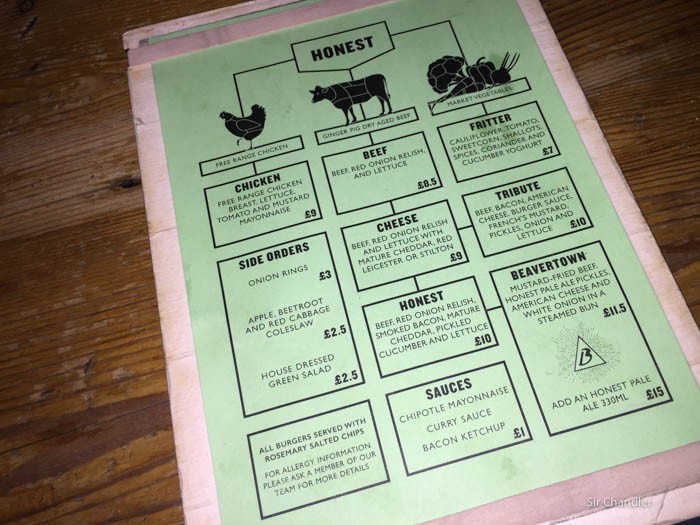 HONEST
FREE RANGE CHICKEN
GINGER PIG DRY AGED BEEF
MARKET VEGETABLES
CHICKEN
FREE RANGE CHICKEN
BREAST, LETTUCE,
TOMATO AND MUSTARD
MAYONNAISE
£9
BEEF
BEEF, RED ONION RELISH,
AND LETTUCE
£8.5
FRITTER
CAULIFLOWER, TOMATO,
SWEETCORN, SHALLOTS,
SPICES, CORIANDER AND
CUCUMBER YOGHURT
£7
CHEESE
BEEF, RED ONION RELISH
AND LETTUCE WITH
MATURE CHEDDAR, RED
LEICESTER OR STILTON
£9
TRIBUTE
BEEF, BACON, AMERICAN
CHEESE, BURGER SAUCE,
FRENCH'S MUSTARD,
PICKLES, ONION AND
LETTUCE
£10
SIDE ORDERS
ONION RINGS
£3
APPLE, BEETROOT
AND RED CABBAGE
COLESLAW
£2.5
HOUSE DRESSED
GREEN SALAD
£2.5
HONEST
BEEF, RED ONION RELISH,
SMOKED BACON, MATURE
CHEDDAR, PICKLED
CUCUMBER AND LETTUCE
£10
BEAVERTOWN
MUSTARD-FRIED BEEF,
HONEST PALE ALE PICKLES,
AMERICAN CHEESE AND
WHITE ONION IN A
STEAMED BUN
£11.5
B
ADD AN HONEST PALE
ALE 330ML
£15
SAUCES
CHIPOTLE MAYONNAISE
CURRY SAUCE
BACON KETCHUP
£1
ALL BURGERS SERVED WITH
ROSEMARY SALTED CHIPS
FOR ALLERGY INFORMATION
PLEASE ASK A MEMBER OF OUR
TEAM FOR MORE DETAILS
Sir Chandler